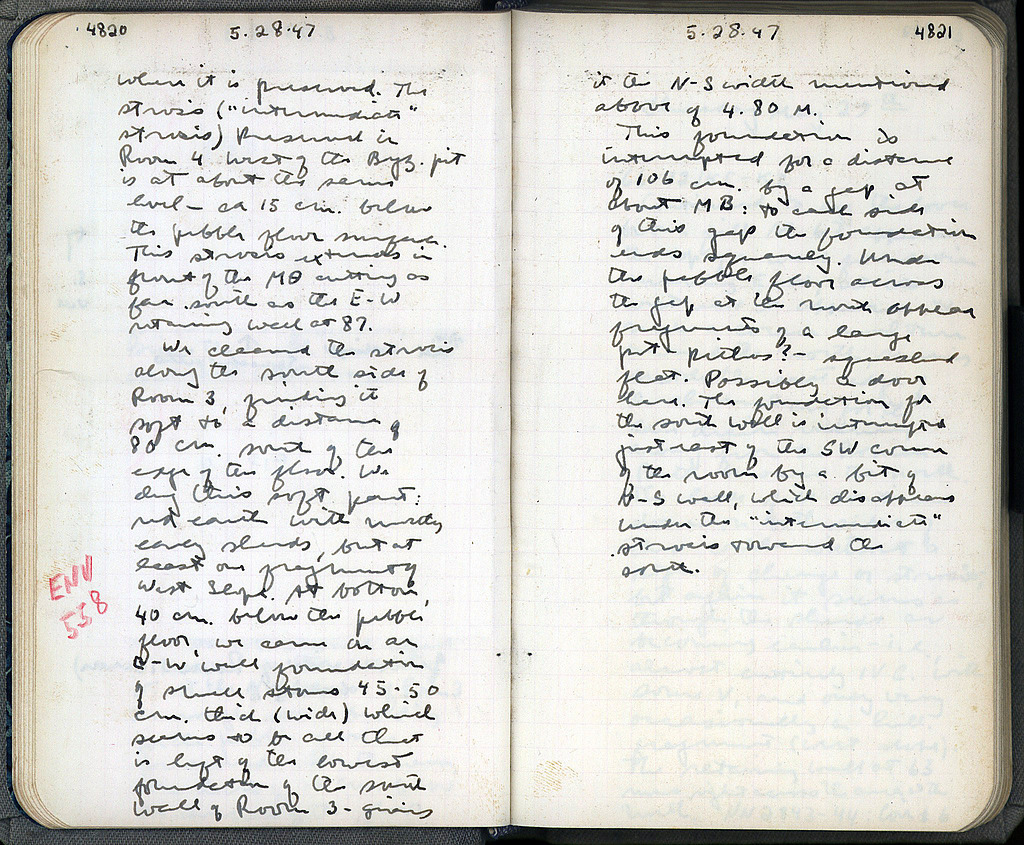 4820
5.28.47
where it is preserved. The
strosis ("intermediate"
strosis) preserved in
Room 4 West of the Byz. pit
is at about the same
level – ca 15 cm. below
the pebble floor surface.
This strosis extends in
front of the MΘ cutting as
far south as the E-W
retaining wall at 87.
We cleaned the strosis
along the south side of
Room 3, finding it
soft to a distance of
80 cm. south of the
edge of the floor. We
dug this soft part:
red earth with mostly
early sherds, but at
least one fragment of
West Slope. At bottom,
40 cm. below the pebble
floor, we came on an
E-W wall foundation
of small stones 45-50
cm. thick (wide) which
seems to be all that
is left of the lowest
foundation of the south
wall of Room 3 - giving
ENV
558
5.28.47
4821
it the N-S width mentioned
above of 4.80 M.
This foundation is
interrupted for a distance
of 106 cm. by a gap at
about MB: to each side
of this gap the foundation
ends squarely. Under
the pebble floor across
the gap at the north appear
fragments of a large
pot - pithos? - squashed
flat. Possibly a door
here. The foundation for
the south wall is interrupted
just east of the SW corner
of the room by a bit of
N-S wall, which disappears
under the "intermediate"
strosis toward the
south.